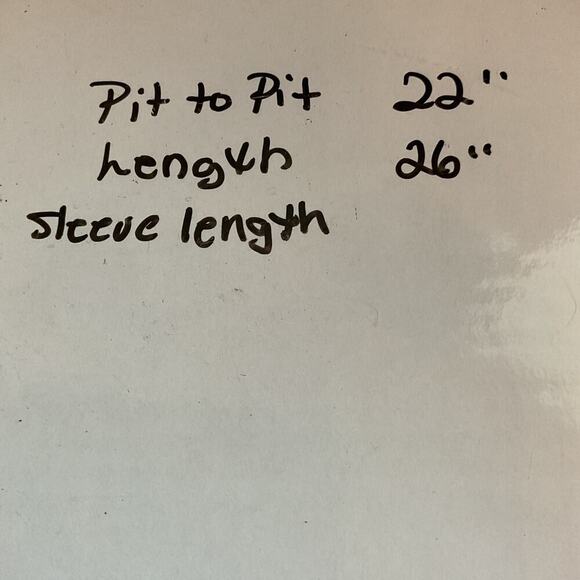 Pit to Pit 22"
Length 26"
Sleeve length